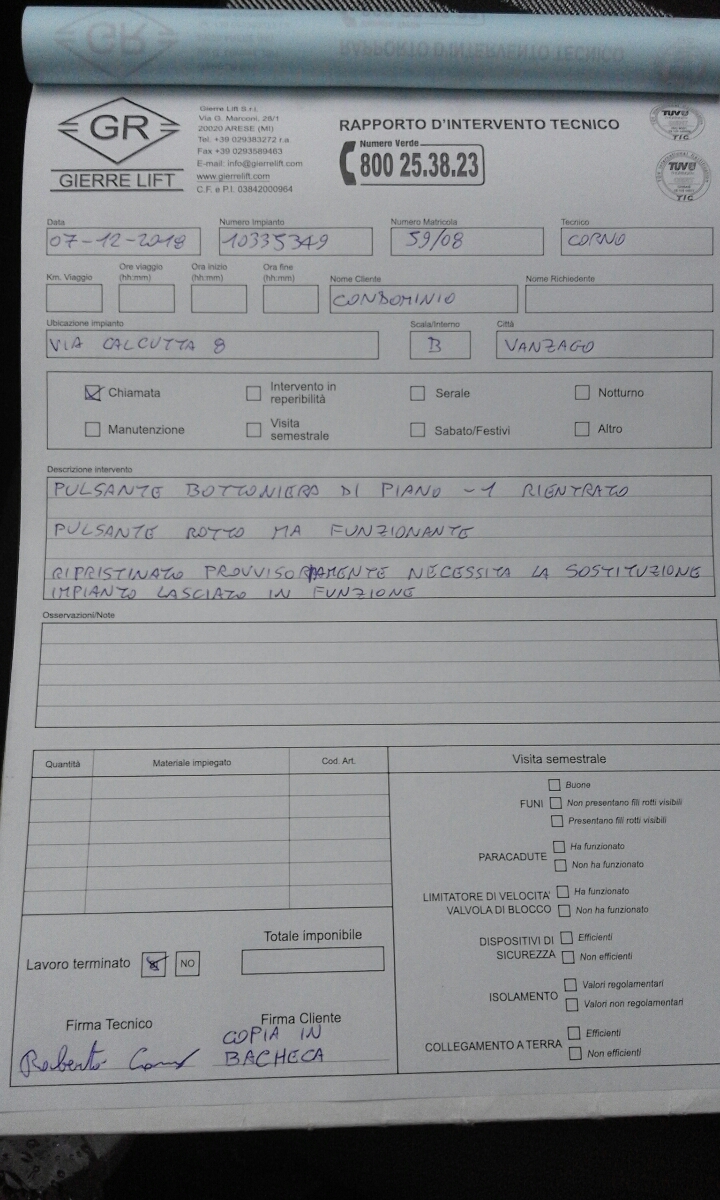 GR
GIERRE LIFT
Gierre Lift S.r.l.
Via G. Marconi, 26/1
20020 ARESE (MI)
Tel. +39 029383272 r.a
Fax +39 0293589483
E-mail: info@gierrelift.com
www.gierrelift.com
C.F. e P.I. 03842000964
RAPPORTO D'INTERVENTO TECNICO
Numero Verde
800 25.38.23
TÜV
TIC
TÜV
TIC
Data Numero Impianto Numero Matricola Tecnico
07-12-2018 10335349 59/08 CORNO
Km. Viaggio Ore viaggio (hh:mm) Ora inizio (hh:mm) Ora fine (hh:mm) Nome Cliente Nome Richiedente
CONDOMINIO
Ubicazione impianto Scala/Interno Città
VIA CALCUTTA 8 B VANZAGO
Chiamata Intervento in reperibilità Serale Notturno
Manutenzione Visita semestrale Sabato/Festivi Altro
Descrizione intervento
PULSANTE BOTTONIERA DI PIANO -1 RIENTRATO
PULSANTE ROTTO MA FUNZIONANTE
RIPRISTINATO PROVVISORIAMENTE NECESSITA LA SOSTITUZIONE
IMPIANTO LASCIATO IN FUNZIONE
Osservazioni/Note
Quantità Materiale impiegato Cod. Art.
Visita semestrale
Buone
FUNI Non presentano fili rotti visibili
Presentano fili rotti visibili
Ha funzionato
PARACADUTE
Non ha funzionato
LIMITATORE DI VELOCITA' Ha funzionato
VALVOLA DI BLOCCO Non ha funzionato
DISPOSITIVI DI Efficienti
SICUREZZA Non efficienti
Valori regolamentari
ISOLAMENTO
Valori non regolamentari
Efficienti
COLLEGAMENTO A TERRA
Non efficienti
Totale imponibile
Lavoro terminato NO
Firma Tecnico Firma Cliente
Roberto COPIA IN
BACHECA